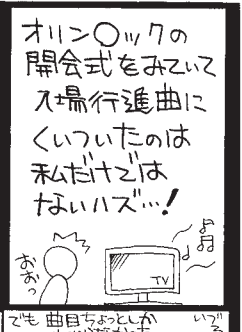 オリン〇ックの
開会式をみていて
入場行進曲に
くいついたのは
私だけでは
ないハズ…!
おおっ
TV
でも 曲目ちょっとしか